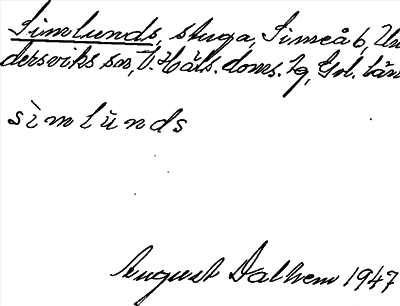 Simlunds, stuga, Simeå 6, Un
dersviks sn, V. Häls. doms. Lg, Gvl. län
sìmlùnds
August Dalhem 1947